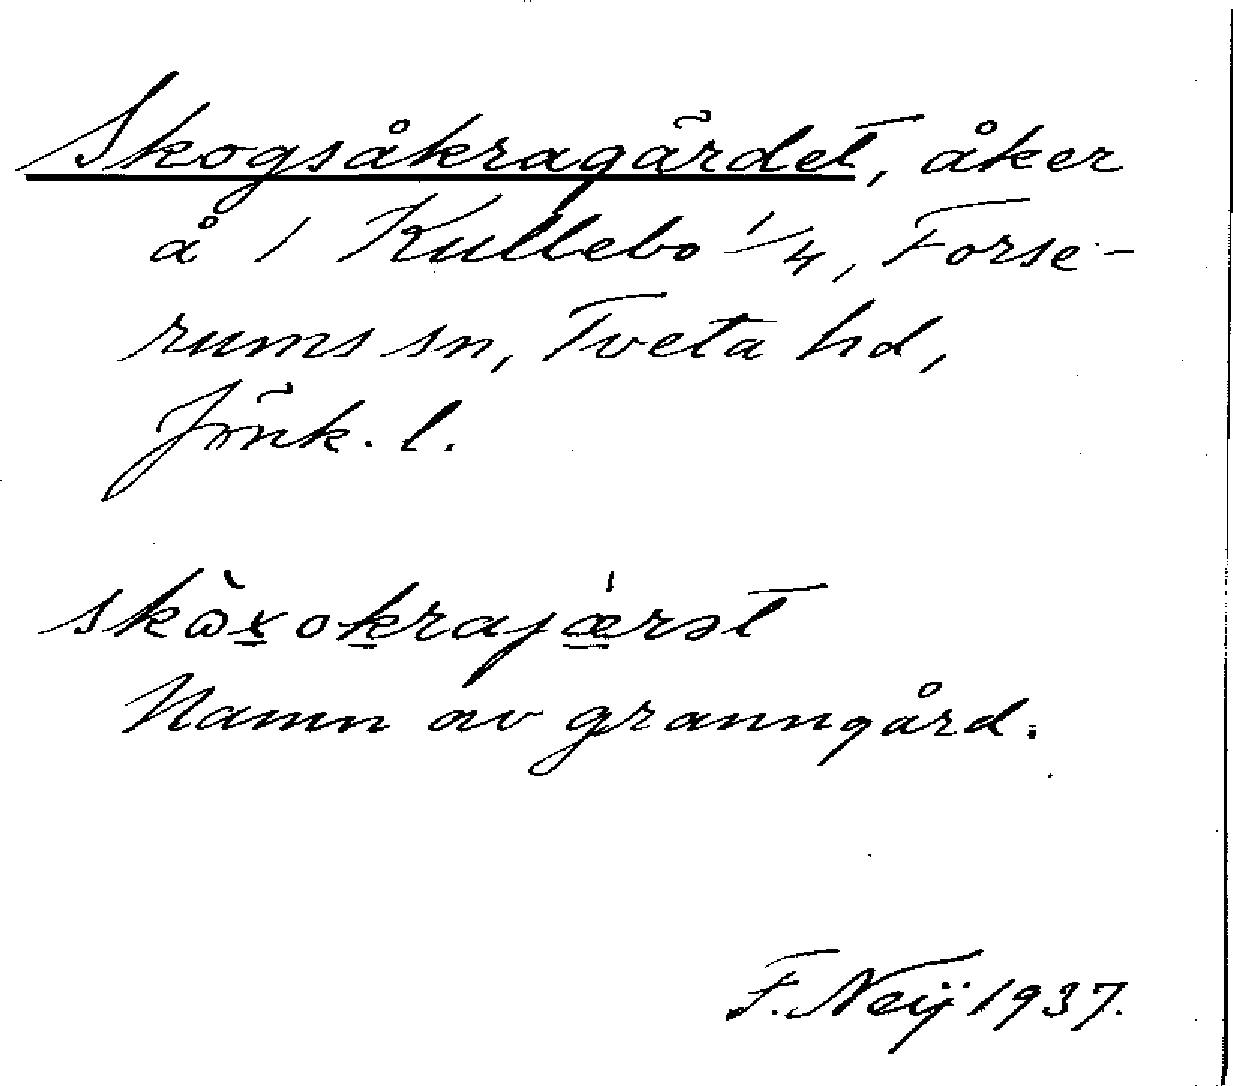 Skogsåkragärdet, åker
å 1 Kullebo 1/4, Forse-
rums sn, Tveta hd,
Jönk. l.
Namn av granngård.
F. Neij 1937.